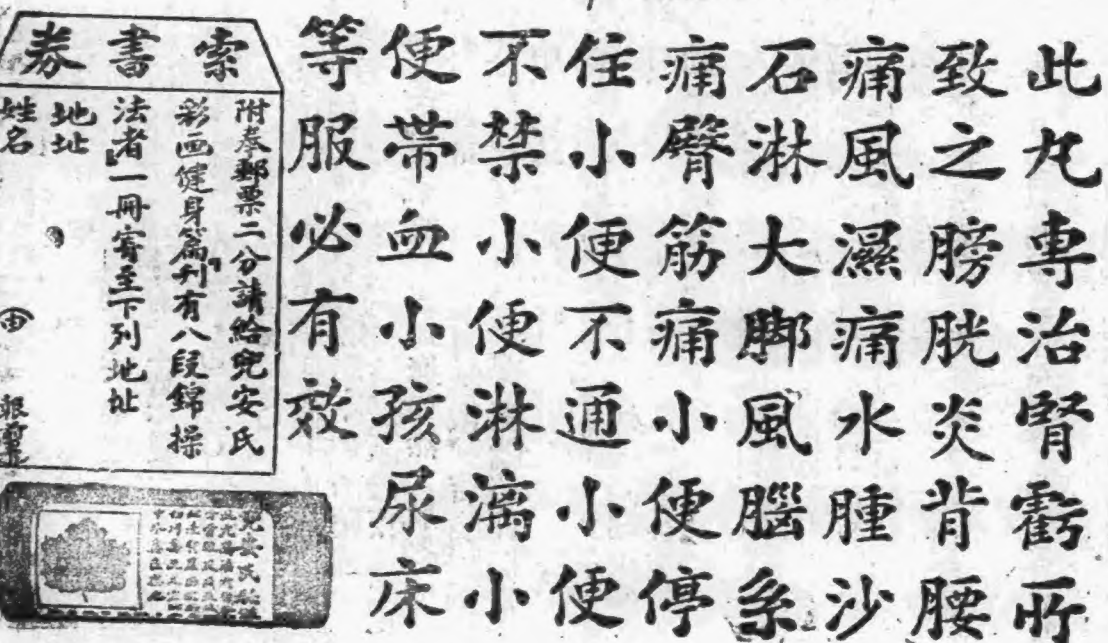 此丸專治腎虧所
致之膀胱炎背腰
痛風濕痛水腫沙
石淋大脚風腦系
痛臀筋痛小便停
住小便不通小便
不禁小便淋漓小
便帶血小孩尿床
等服必有效
索書券
附奉郵票二分請給兜安氏
彩画健身篇刊有八段錦操
法者一冊寄至下列地址
地址
姓名
由